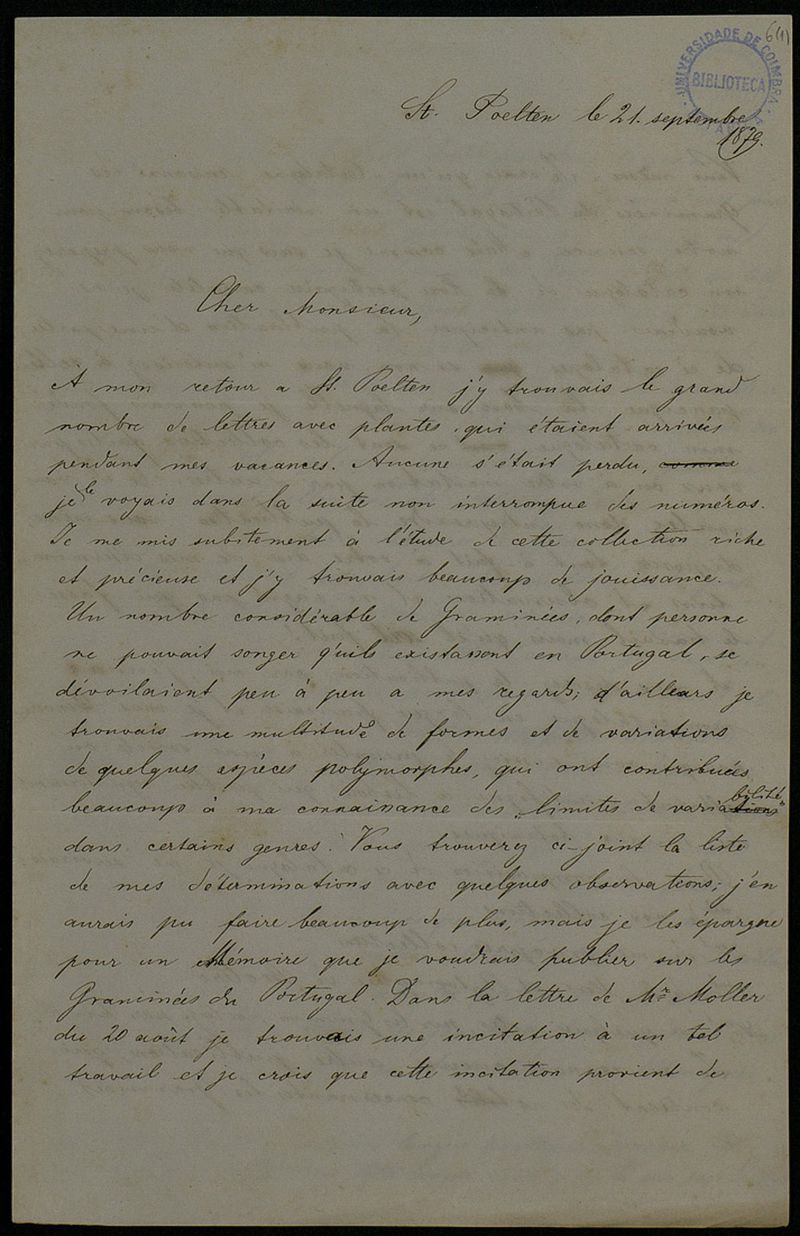 6(1)
UNIVERSIDADE DE COIMBRA
BIBLIOTECA
St. Poelten le 21. septembre
1879.
Cher Monsieur,
A mon retour a St. Poelten j'y trouvais le grand
nombre de lettres avec plantes qui étaient arrivées
pendant mes vacances. Aucune s'était perdu, comme
je le voyais dans la suite non interrompue des numéros.
Je me mis subitement à l'étude de cette collection riche
et précieuse et j'y trouvais beaucoup de jouissance.
Un nombre considérable de Graminées, dont personne
ne pouvait songer qu'ils existassent en Portugal, se
dévoilaient peu à peu a mes regards; d'ailleurs je
trouvais une multitude de formes et de variations
de quelques espèces polymorphes, qui ont contribuées
beaucoup à ma connaissance des „limites de variabilité"
dans certains genres. Vous trouverez ci-joint la liste
de mes déterminations avec quelques observations; j'en
aurais pu faire beaucoup de plus, mais je les épargne
pour un Mémoire que je voudrais publier sur les
Graminées du Portugal. Dans la lettre de Mr Moller
du 20 août je trouvais une incitation à un tel
travail et je crois que cette incitation provient de